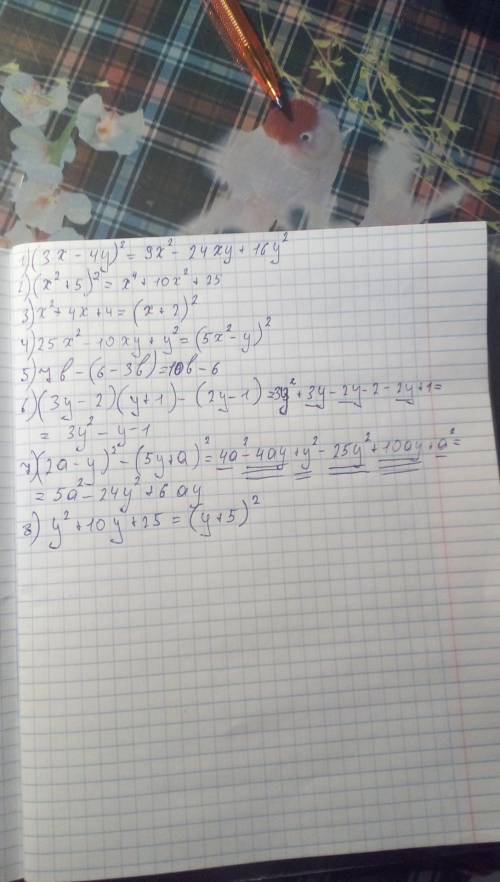 1) (3x - 4y)² = 9x² - 24xy + 16y²
2) (x² + 5)² = x⁴ + 10x² + 25
3) x² + 4x + 4 = (x + 2)²
4) 25x² - 10xy + y² = (5x² - y)²
5) 7в - (6 - 3в) = 10в - 6
6) (3y - 2)(y + 1) - (2y - 1) = 3y² + 3y - 2y - 2 - 2y + 1 =
= 3y² - y - 1
7) (2a - y)² - (5y + a)² = 4a² - 4ay + y² - 25y² + 10ay + a² =
= 5a² - 24y² + 6ay
8) y² + 10y + 25 = (y + 5)²